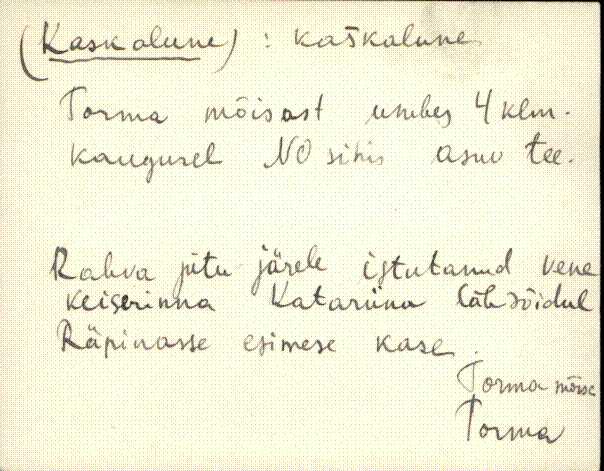 (Kaskalune) : kaškalune
Torma mõisast umbes 4 klm.
kaugusel NO sihis asuv tee.
Rahva jutu järele istutanud vene
keiserinna Katariina läbisõidul
Räpinasse esimese kase.
Torma mõisa
Torma